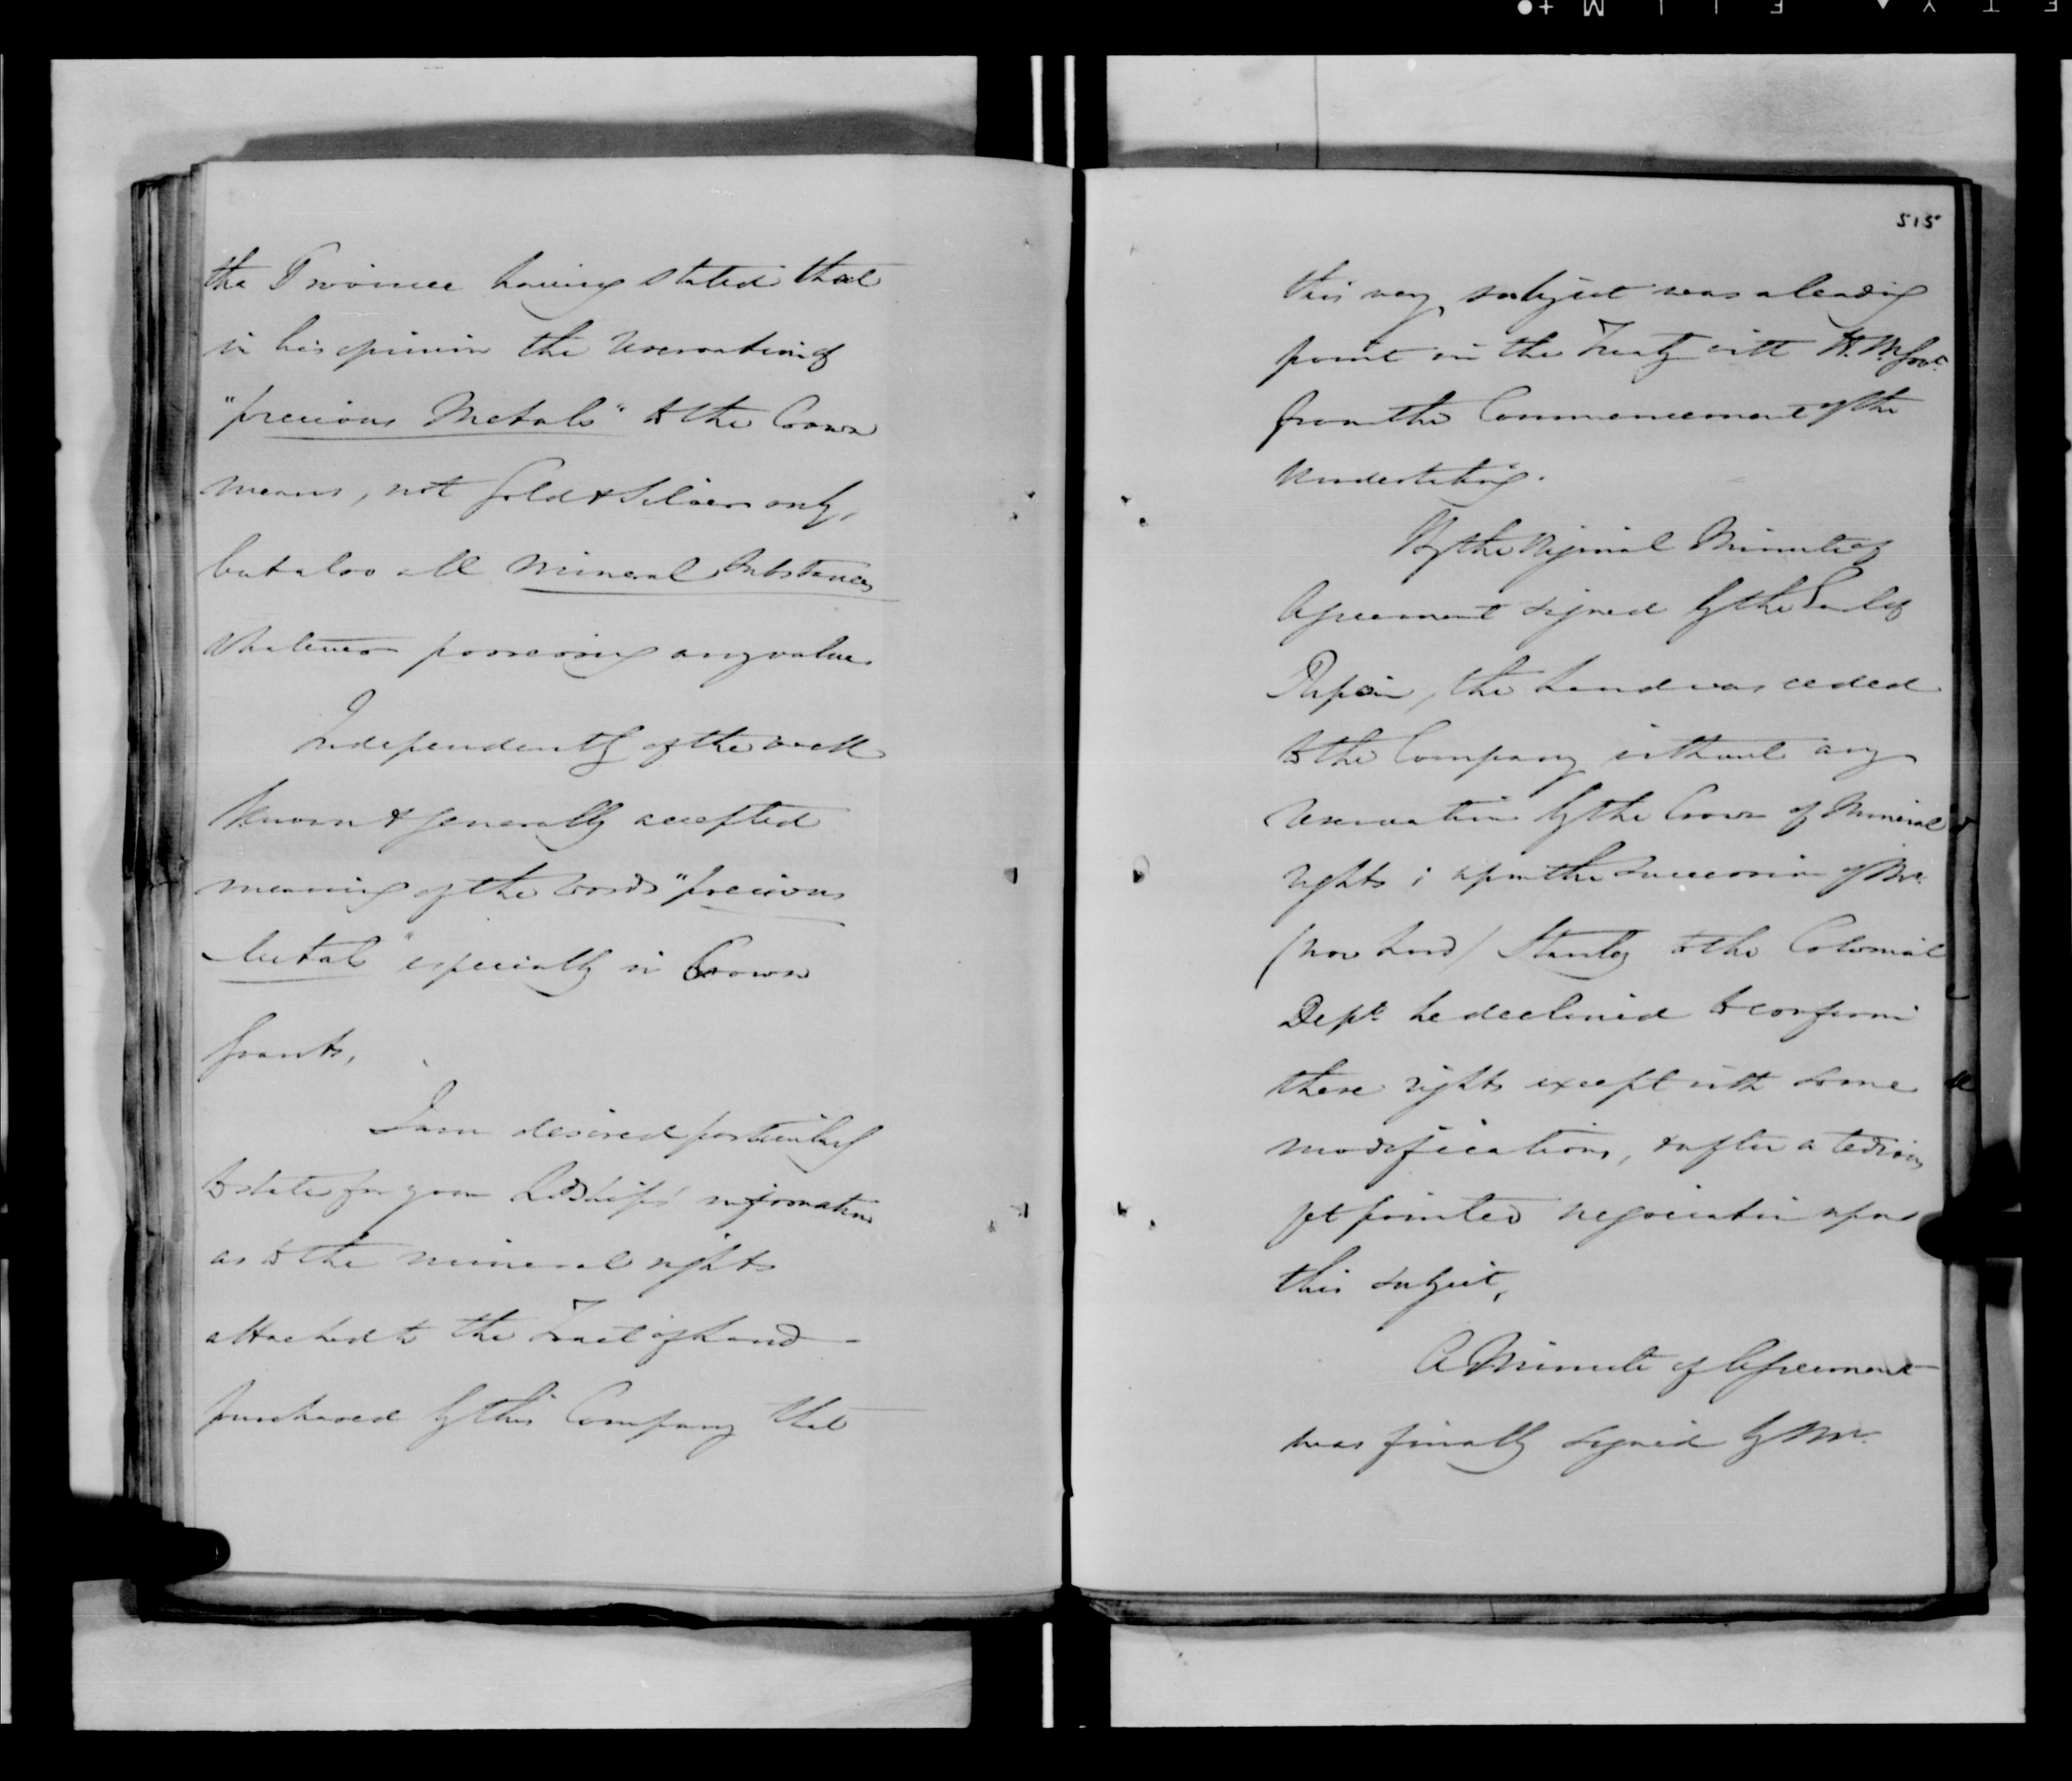 the Province having stated that
in his opinion the reservation of
"precious Metals" to the Crown
means, not Gold & Silver only,
but also all mineral substances
whatever possessing any value.
Independently of the well
known & generally accepted
meaning of the words "precious
Metals" especially in Crown
Grants,
I am desired particularly
to state for your Lordship's information
as to the mineral rights
attached to the Tract of Land
purchased by this Company that
515
this very subject was a leading
point in the Treaty with H. M. Govt.
from the Commencement of the
Undertaking.
By the Original Minute of
Agreement signed by the Earl of
Ripon, the Land was ceded
to the Company without any
reservation by the Crown of Mineral
rights; upon the succession of Mr.
(now Lord) Stanley to the Colonial
Dept. he declined to confirm
these rights except with some
modifications, & after a tedious
yet pointed negociation upon
this subject,
A Minute of Agreement
was finally signed by Mr.